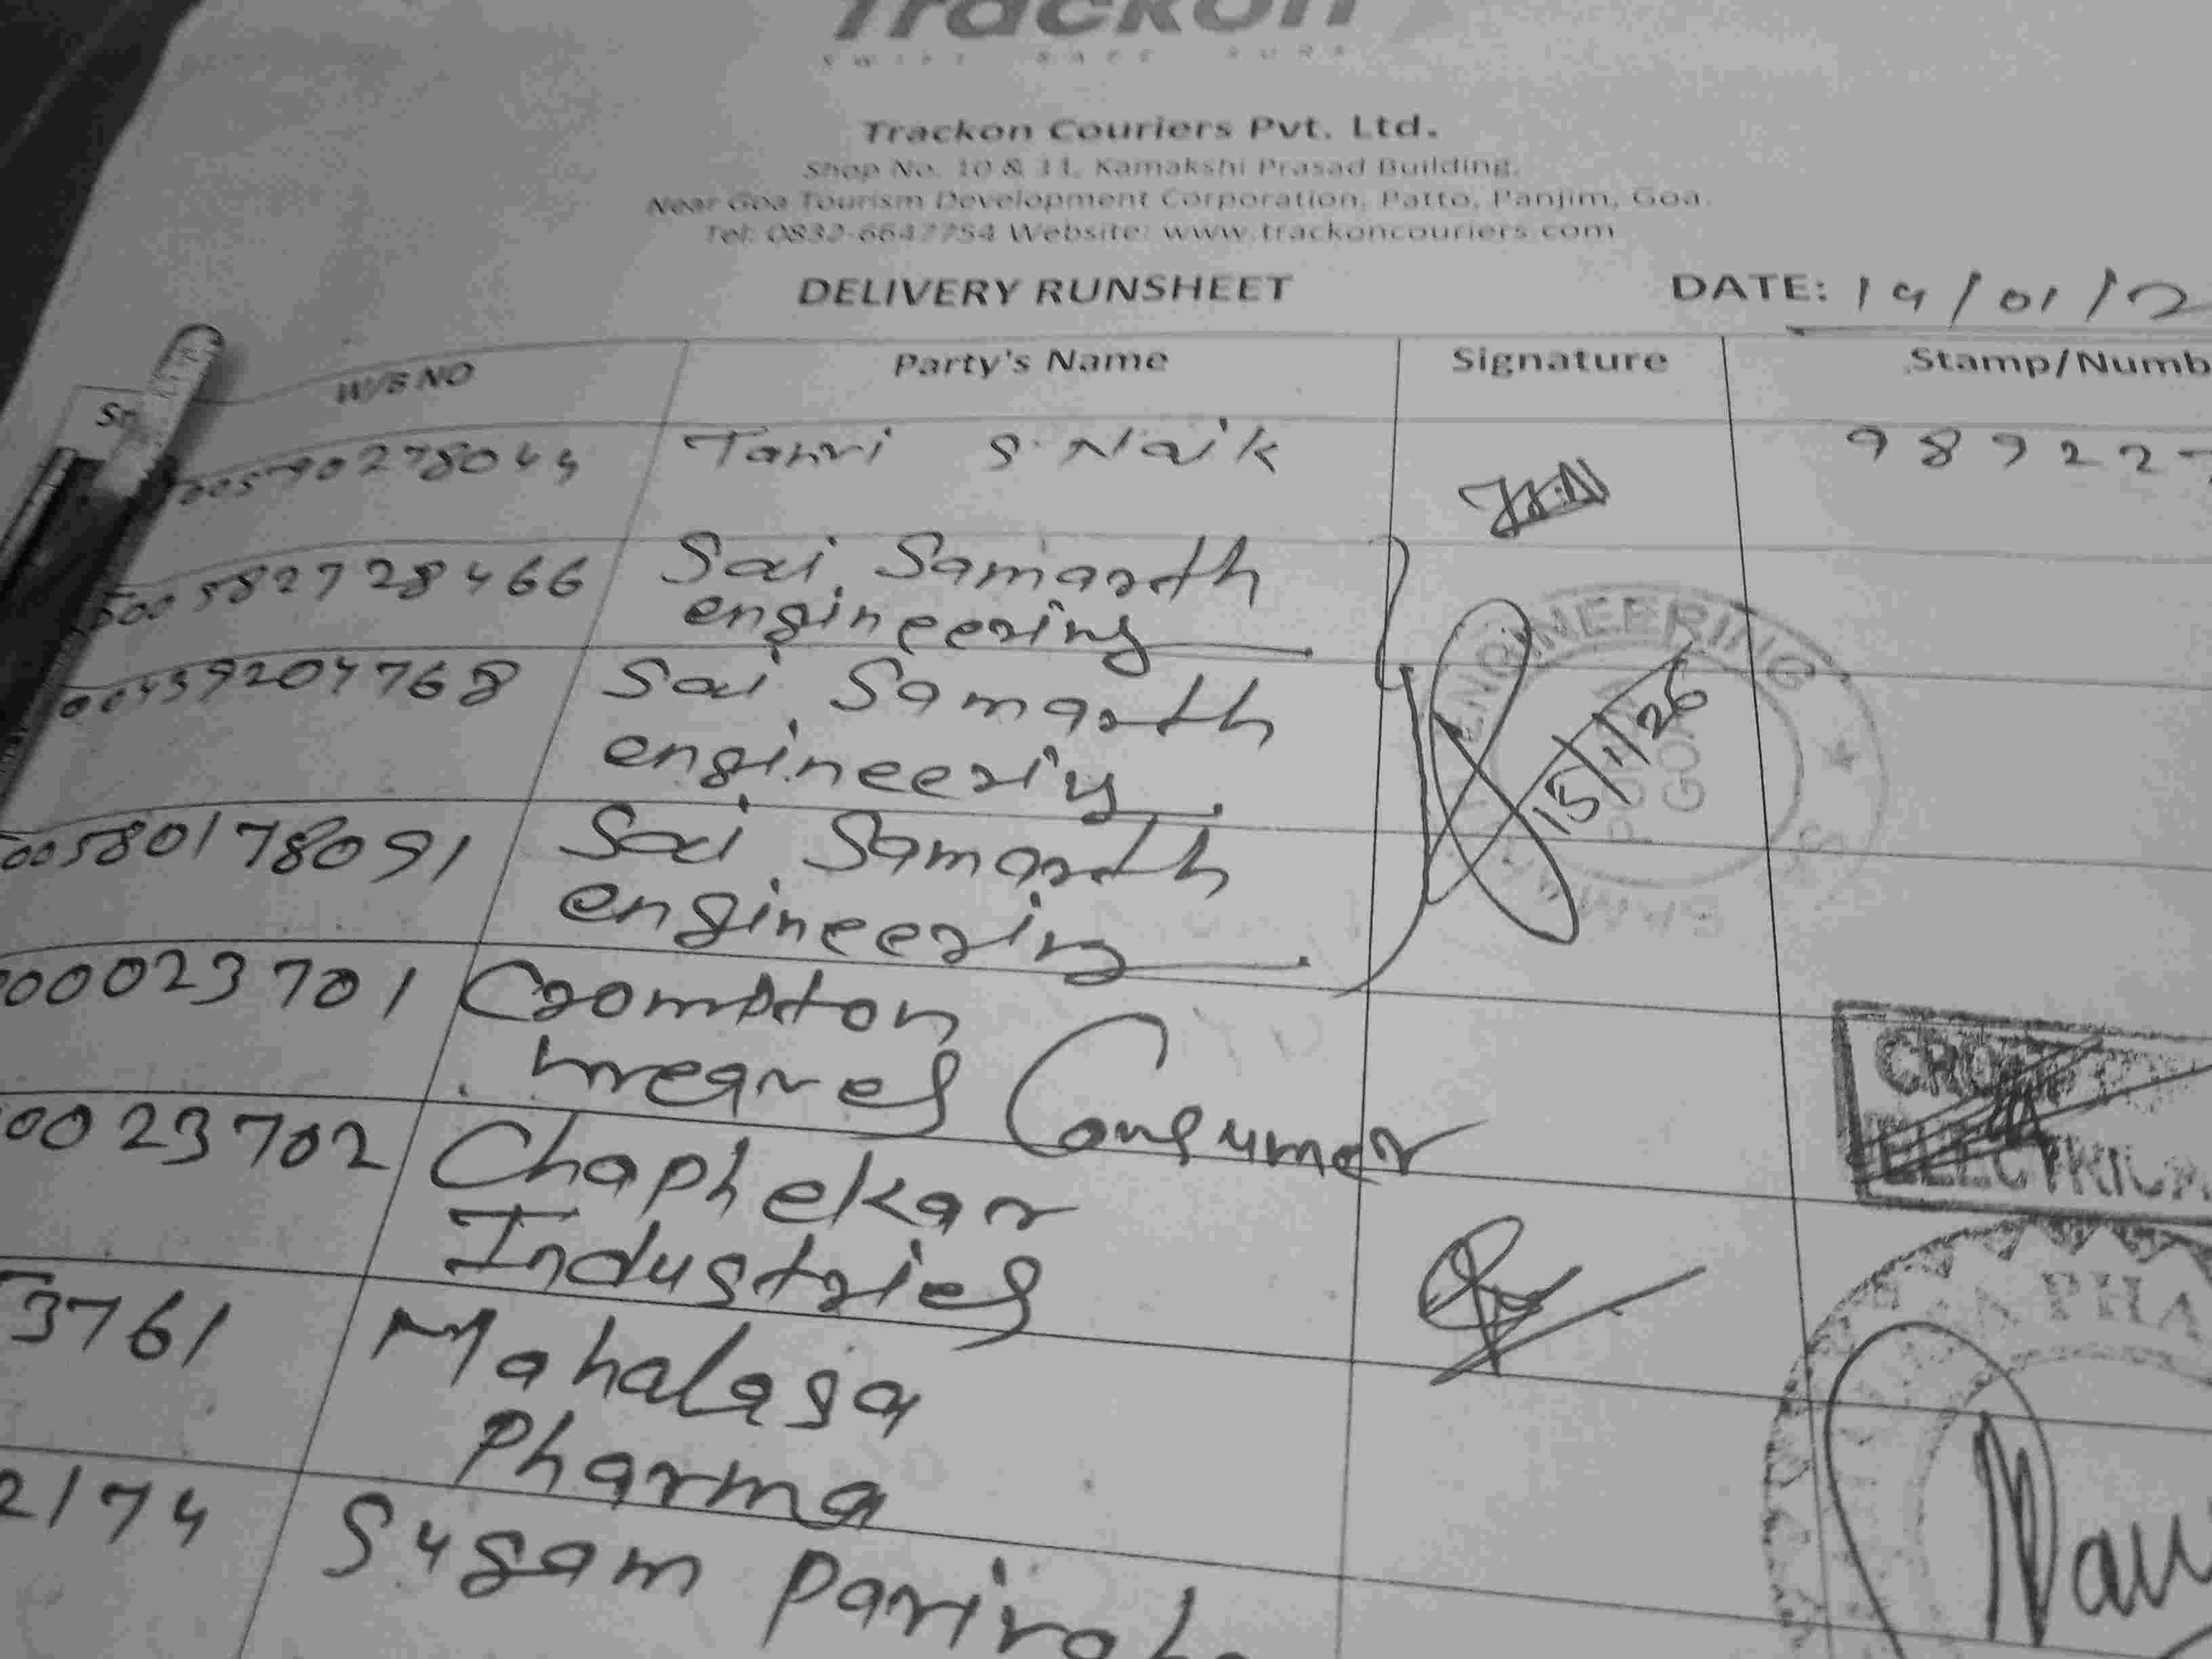 Trackon
SWIFT SAFE SURE
Trackon Couriers Pvt. Ltd.
Shop No. 10 & 11, Kamakshi Prasad Building,
Near Goa Tourism Development Corporation, Patto, Panjim, Goa.
Tel: 0832-6647754 Website: www.trackoncouriers.com
DELIVERY RUNSHEET DATE: 14/01/2
Sr W/B NO Party's Name Signature Stamp/Numb
Tanvi S. Naik 989227
500582728466 Sai Samarth
engineering
Sai Samarth
engineering
ENGINEERING
15/1/26
GOA
00580178091 Sai Samarth
engineering
000023701 Crompton
Greaves Consumer
CRO
ELECTRICA
0023702 Chaphekar
Industries
3761 Mahalasa
Pharma
PHA
2174 Sugam